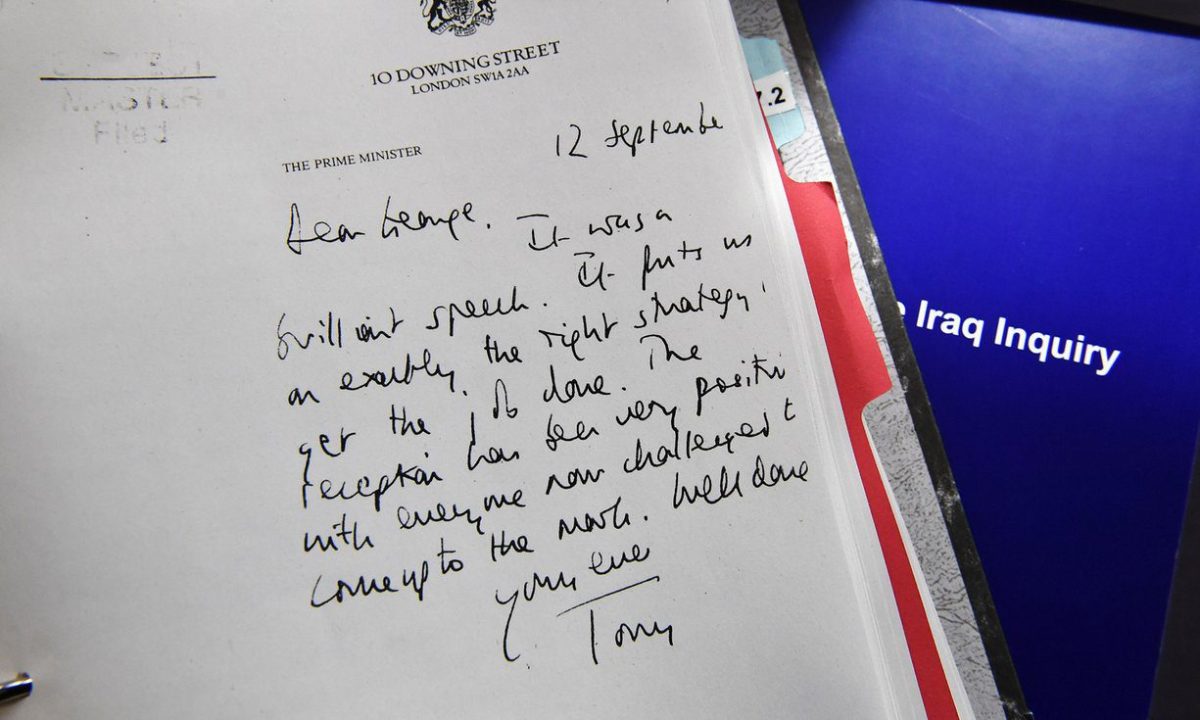 MASTER
Filed
10 DOWNING STREET
LONDON SW1A 2AA
THE PRIME MINISTER
12 September
Dear George.
It was a
brilliant speech. It puts us
on exactly the right strategy
get the job done. The
reception has been very positive
with everyone now challenged t
come up to the mark. Well done
Yours ever
Tony
7.2
Iraq Inquiry